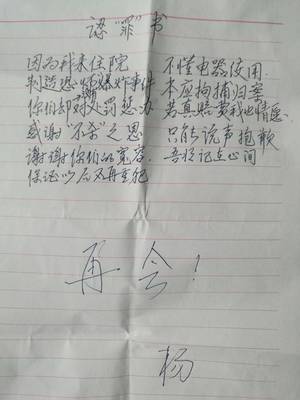 認"罪"书
因为我来住院 不懂电器使用.
制造恐怖爆炸事件 本应拘捕归案
你们却对处罚惩办 若真赔费我也情愿.
感谢"不杀"之恩 只能说声抱歉
谢谢你们的宽容. 吾将记在心间
保证以后不再重犯
再会!
杨